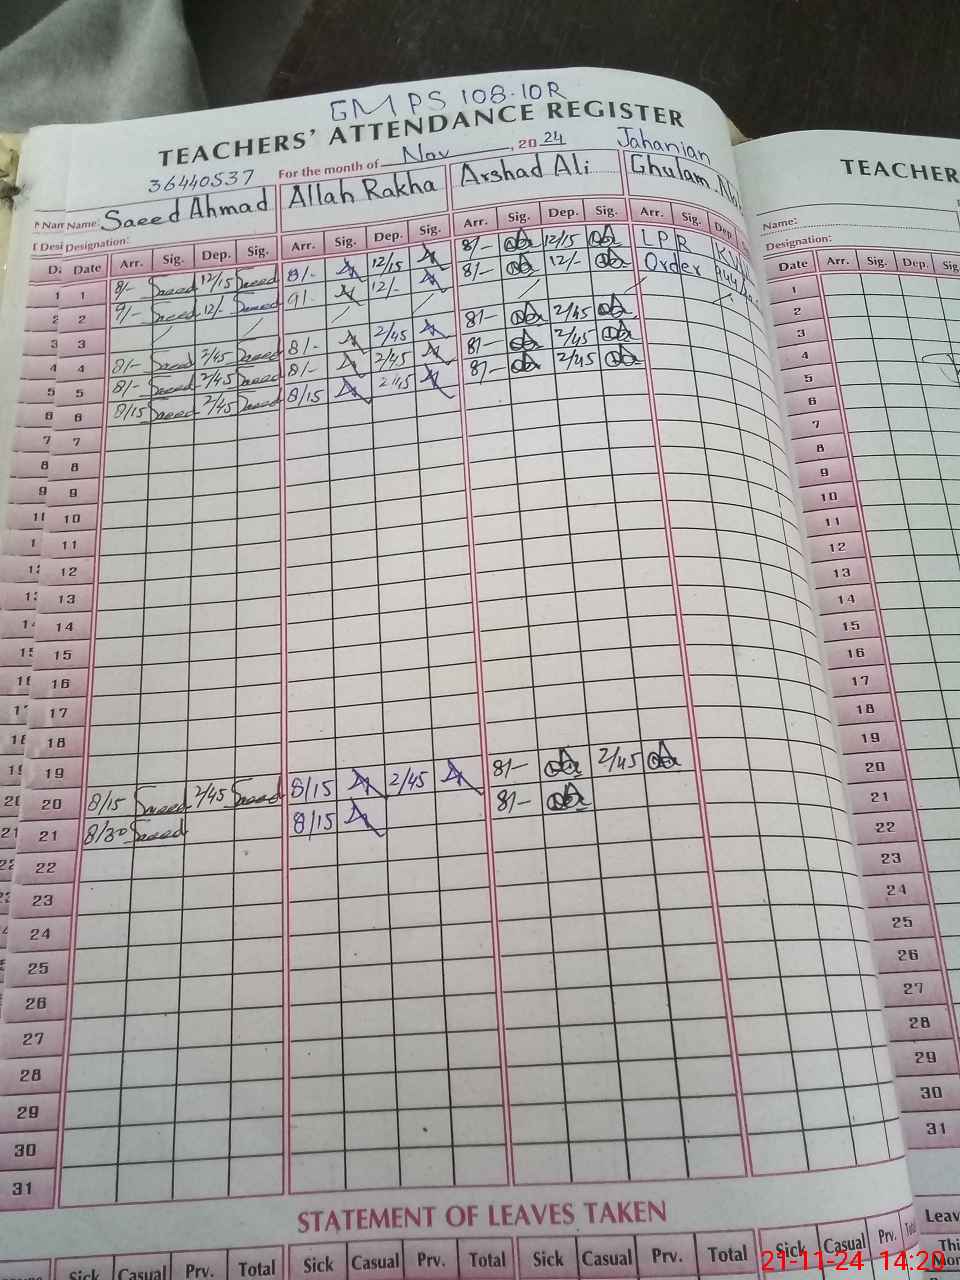 GMPS 108-10R
TEACHERS' ATTENDANCE REGISTER
For the month of Nov, 2024 Jahanian
36440537
Name: Saeed Ahmad Allah Rakha Arshad Ali Ghulam
Designation:
Date Arr. Sig. Dep. Sig. Arr. Sig. Dep. Sig. Arr. Sig. Dep. Sig. Arr. Sig. Dep.
1 8/- Saeed 12/15 Saeed 8/- 12/15 8/- 12/15 LPR
2 9/- Saeed 12/- Saeed 9/- 12/- 8/- 12/- Order
3
4 8/- Saeed 2/45 Saeed 8/- 2/45 8/- 2/45
5 8/- Saeed 2/45 Saeed 8/- 2/45 8/- 2/45
6 8/15 Saeed 2/45 Saeed 8/15 2/45 8/- 2/45
7
8
9
10
11
12
13
14
15
16
17
18
19
20 8/15 Saeed 2/45 Saeed 8/15 2/45 8/- 2/45
21 8/30 Saeed 8/15 8/-
22
23
24
25
26
27
28
29
30
31
STATEMENT OF LEAVES TAKEN
Sick Casual Prv. Total Sick Casual Prv. Total Sick Casual Prv. Total Sick Casual Prv.
TEACHER
Name:
Designation:
Date Arr. Sig. Dep.
1
2
3
4
5
6
7
8
9
10
11
12
13
14
15
16
17
18
19
20
21
22
23
24
25
26
27
28
29
30
31
Leav
This
Mon
21-11-24 14:20